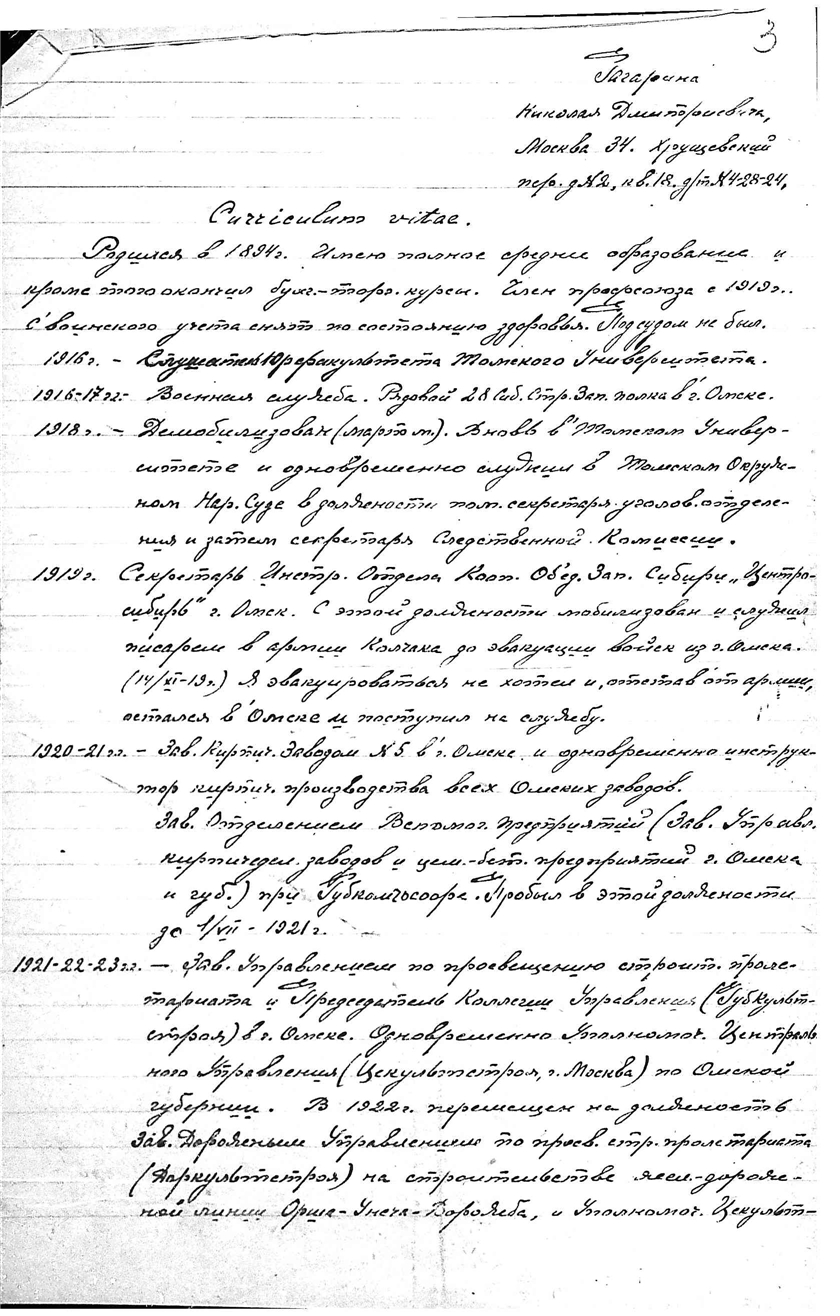 3
Гагарина
Николая Дмитриевича,
Москва 34. Хрущевский
пер. д№2, кв.18. д/т №4-28-24.
Curriculum vitae.
Родился в 1894г. Имею полное среднее образование и
кроме того окончил бухг.-торг. курсы. Член профсоюза с 1919г..
С воинского учета снят по состоянию здоровья. Под судом не был.
1916г. - Слушатель Юрфакультета Томского Университета.
1916-17гг- Военная служба. Рядовой 28 Сиб. Стр. Зап. полка в г. Омске.
1918г. - Демобилизован (март м.). Вновь в Томском Универ-
ситете и одновременно служил в Томском Окруж-
ном Нар. Суде в должности пом. секретаря уголов. отделе-
ния и затем секретаря Следственной Комиссии.
1919г. Секретарь Инстр. Отдела Кооп. Об'ед. Зап. Сибири „Центро-
сибирь" г. Омск. С этой должности мобилизован и служил
писарем в армии Колчака до эвакуации войск из г. Омска.
(14/XI-19г.) Я эвакуироваться не хотел и, отстав от армии,
остался в Омске и поступил на службу.
1920-21гг. - Зав. Кирпич. Заводом №5 в г. Омске и одновременно инструк-
тор кирпич. производства всех Омских заводов.
Зав. Отделением Вспомог. предприятий (Зав. Управл.
кирпичедел. заводов и цем.-бет. предприятий г. Омска
и губ.) при Губкомгосооре. Пробыл в этой должности
до 1/VII - 1921г.
1921-22-23гг. - Зав. Управлением по просвещению строит. проле-
тариата и Председатель Коллегии Управления (Губкульт-
строя) в г. Омске. Одновременно Уполномоч. Централь-
ного Управления (Цекультстроя, г. Москва) по Омской
губернии. В 1922г. перемещен на должность
Зав. Дорожным Управлением по просв. стр. пролетариата
(Доркультстроя) на строительстве жел.-дорож-
ной линии Орша-Унеча-Ворожба, и Уполномоч. Цекульт-